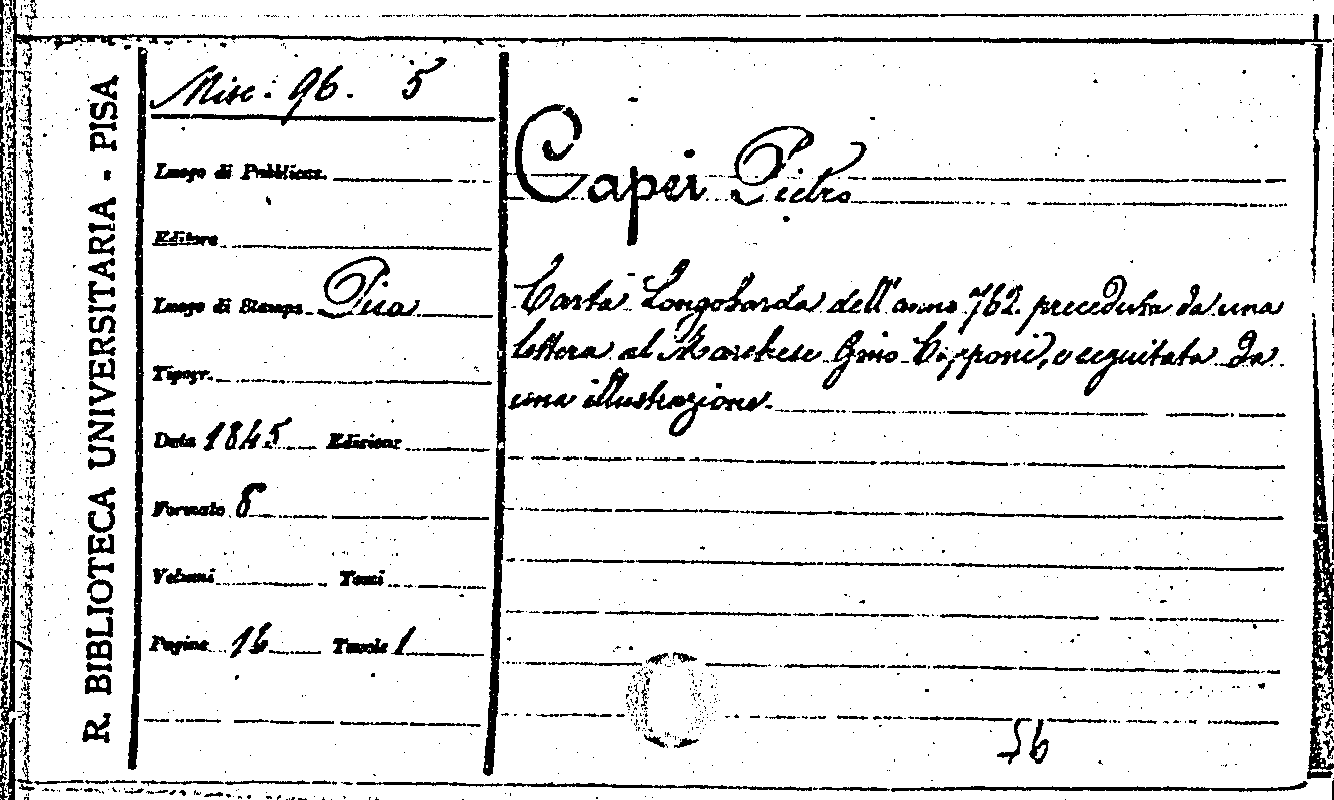 R. BIBLIOTECA UNIVERSITARIA - PISA
Misc. 96. 5
Luogo di Pubblicaz.
Editore
Luogo di Stampa Pisa
Tipogr.
Data 1845 Edizione
Formato 8
Volumi Tomi
Pagine Tavole 1
Capei Pietro
Carta Longobarda dell'anno 762. preceduta da una
lettera al Marchese Gino Capponi, e seguitata da
una illustrazione.